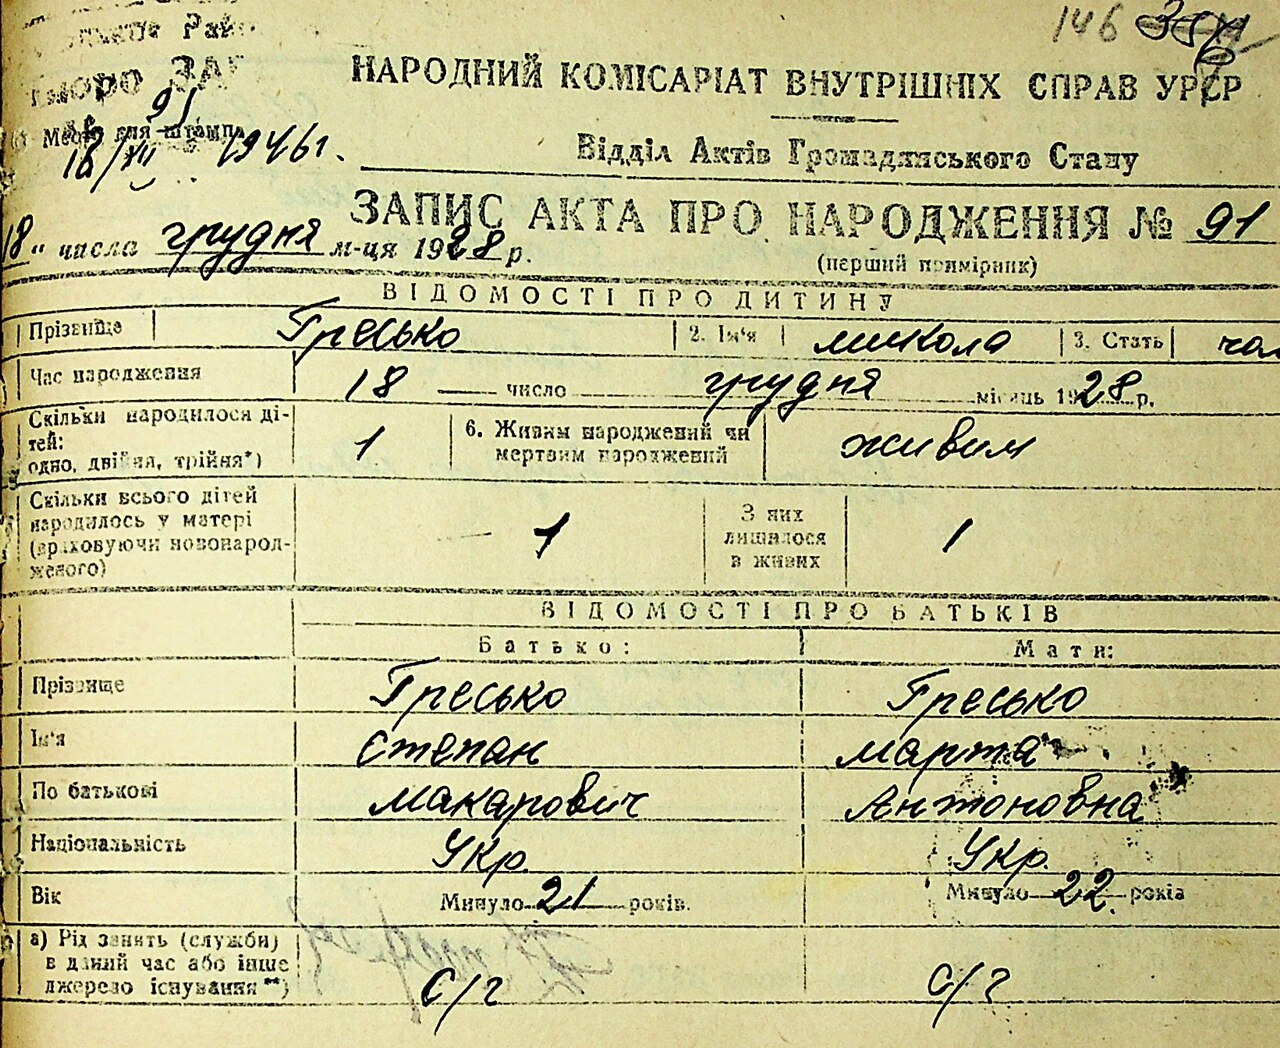 146
Рай
БЮРО ЗАГ
НАРОДНИЙ КОМІСАРІАТ ВНУТРІШНІХ СПРАВ УРСР
91
Місце для штампа
18/XII 1946 г.
Відділ Актів Громадянського Стану
ЗАПИС АКТА ПРО НАРОДЖЕННЯ № 91
18 " числа грудня м-ця 1928 р.
(перший примірник)
ВІДОМОСТІ ПРО ДИТИНУ
Прізвище Гресько 2. Ім'я Микола 3. Стать чол
Час народження 18 число грудня місяць 1928 р.
Скільки народилося ді-
тей:
одно, двійня, трійня*) 1 6. Живим народжений чи
мертвим народжений живим
Скільки всього дітей
народилось у матері
(враховуючи новонарод-
женого) 1 З них
лишилося
в живих 1
ВІДОМОСТІ ПРО БАТЬКІВ
Батько: Мати:
Прізвище Гресько Гресько
Ім'я Степан Марта
По батькові Макарович Антоновна
Національність Укр. Укр.
Вік Минуло 21 років. Минуло 22 років
а) Рід занять (служби)
в даний час або інше
джерело існування **) С/г С/г